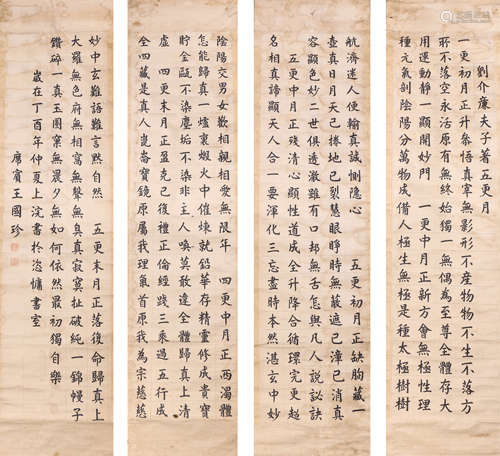 劉介廉夫子著五更月
一更初月正升参悟真宰無影形不産物物不生不落方
所不落空永活原有無終始獨一無偶為至尊全體存大
用運動靜一顯開妙門　一更中月正新方會無極性理
種元氣剖陰陽分萬物成備人極生無極是種太極樹樹
航濟迷人便翰真誠惻隐心　五更初月正缺朐藏一
壺真日月天已捲地已裂慧眼睜時無蔽遮已漳已消真
容顯色妙二世俱透澈雖有口邦無舌怎與凡人說訣
五更中月正残清心顯性道成全升降合循環完更超
名相真諦顯天人合一要渾化三忘盡時本然湛玄中妙
陰陽交男女歡相親相愛無限年　四更中月正西濁體
怎能歸真一爐裏煅火中催煉就鉛華存精靈修成貴寶
貯金甌不染塵垢不染非主人喚莫敢違全體歸真上清
虛　四更末月正盈克已復禮正倫經踐三乘過五行成
全四藏是真人崑崙寶鏡原屬我理象首原我為宗慈慈
妙中玄難語難言黙自然　五更末月正落復命歸真上
大羅無色府無相窩無聲無臭真寂寞扯破純一錦幔子
鑽碎一真玉團窠無晨夕無如何依然最初獨自樂
歲在丁酉年仲夏上浣書於恣慵書室
席賓王國珍